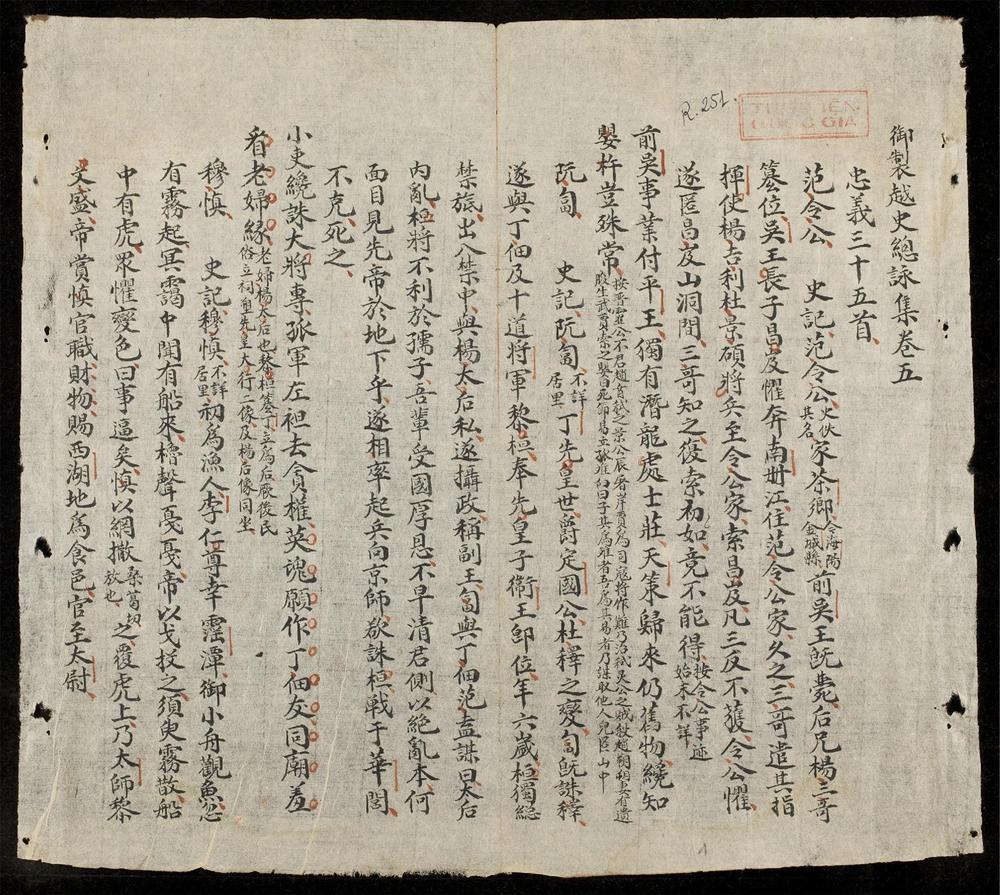 R.251.
THƯ VIỆN
QUỐC GIA
御製越史總詠集卷五
忠義三十五首
范令公 史記范令公火佚其名家茶鄉今海陽金城縣前吳王旣薨后兄楊三哥
篡位吳王長子昌岌懼奔南冊江住范令公家久之三哥遣其指
揮使楊吉利杜景碩將兵至令公家索昌岌凡三反不獲令公懼
遂匿昌岌山洞間三哥知之復索初如竟不能得按令公事迹始末不詳
前吳事業付平王獨有潛龍處士莊天策歸來仍舊物纔知
嬰杵豈殊常按晉靈公不君趙盾弑之景公辰屠岸賈爲司寇將作難乃治弑灵公之賊殺趙朔朔妻有遺腹生武賈索之嬰曰死節易立孤难杵臼曰子其爲难者吾爲其易者乃謀取他人兒匿山中
阮匐 史記阮匐不詳居里丁先皇世爵定國公杜釋之變匐旣誅釋
遂與丁佃及十道將軍黎桓奉先皇子衛王卽位年六歲桓獨總
禁旅出入禁中與楊太后私遂攝政稱副王匐與丁佃范盍謀曰太后
內亂桓將不利於孺子吾輩受國厚恩不早清君側以絶亂本何
面目見先帝於地下乎遂相率起兵向京師欲誅桓戰于華閭
不克死之
小吏纔誅大將專孤軍左袒去貪權英魂願作丁佃友同廟羞
看老婦緣老婦楊太后也黎桓簒丁立爲后厥後民俗立祠塑先皇大行二像及楊后像同坐
穆慎 史記穆慎不詳居里初爲漁人李仁尊幸霪潭御小舟觀魚忽
有霧起冥靄中聞有船來櫓聲戛戛帝以戈投之須臾霧散船
中有虎眾懼變色曰事逼矣慎以網撒桑葛切放也之覆虎上乃太師黎
文盛帝賞慎官職財物賜西湖地爲食邑官至太尉
1